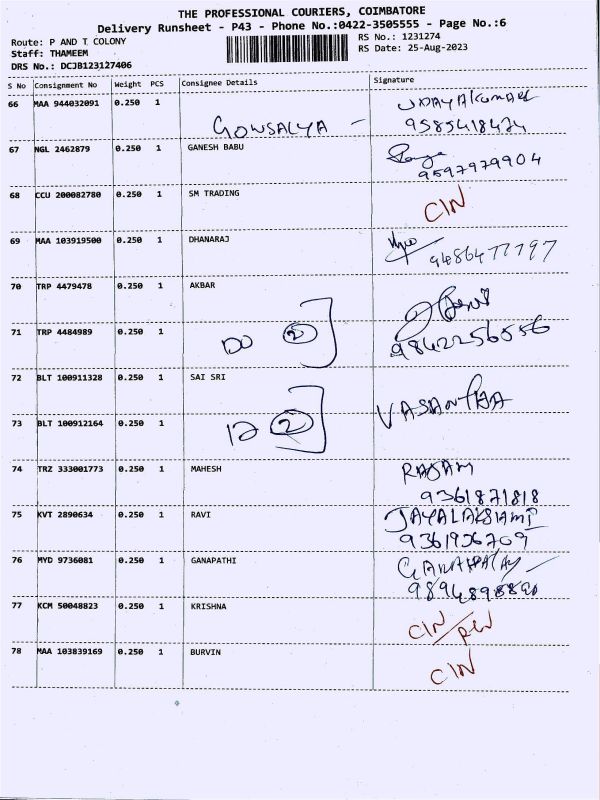 THE PROFESSIONAL COURIERS, COIMBATORE
Delivery Runsheet - P43 - Phone No.:0422-3505555 - Page No.:6
Route: P AND T COLONY
Staff: THAMEEM
DRS No.: DCJB123127406
RS No.: 1231274
RS Date: 25-Aug-2023
S No Consignment No Weight PCS Consignee Details Signature
66 MAA 944032091 0.250 1 GOWSALYA - UDAYAKUMAR
9585418424
67 NGL 2462879 0.250 1 GANESH BABU
9597979904
68 CCU 200082780 0.250 1 SM TRADING CIN
69 MAA 103919500 0.250 1 DHANARAJ
9486477797
70 TRP 4479478 0.250 1 AKBAR
71 TRP 4484989 0.250 1 DO 2 9842256556
72 BLT 100911328 0.250 1 SAI SRI VASANTHA
73 BLT 100912164 0.250 1 2
74 TRZ 333001773 0.250 1 MAHESH RAJAM
9361871818
75 KVT 2890634 0.250 1 RAVI JAYALAKSHAMI
9361936709
76 MYD 9736081 0.250 1 GANAPATHI
9894898890
77 KCM 50048823 0.250 1 KRISHNA CIN
78 MAA 103839169 0.250 1 BURVIN CIN